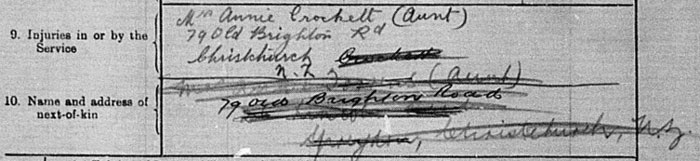 9. Injuries in or by the
Service
Mrs Annie Crockett (Aunt)
79 Old Brighton Rd
Christchurch
N.Z
10. Name and address of
next-of-kin
(Aunt)
79 Old, Brighton Road
Christchurch, N.Z